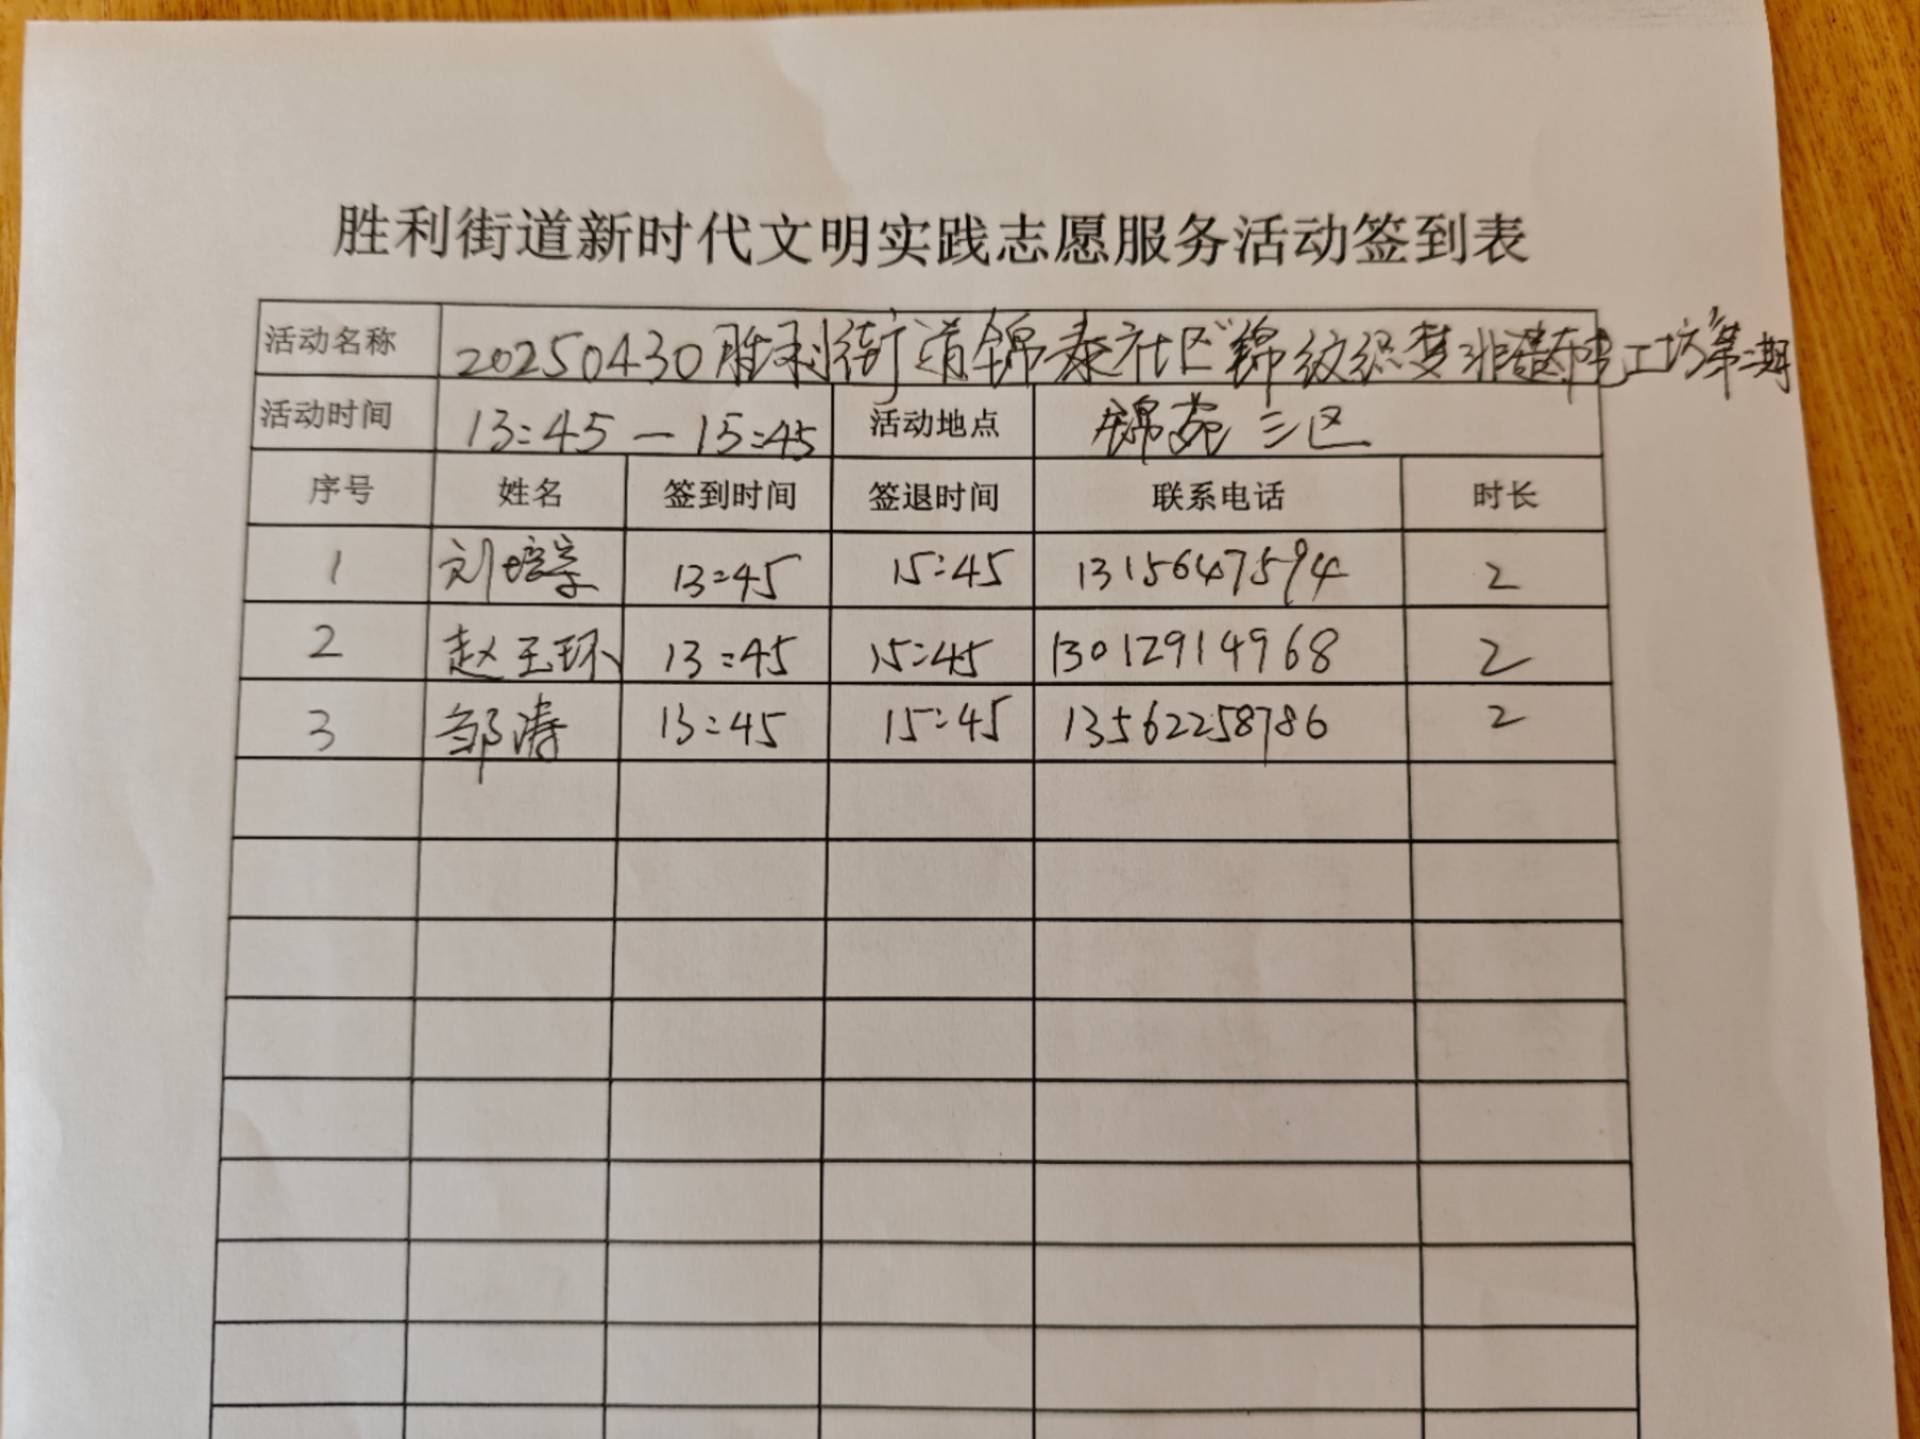 胜利街道新时代文明实践志愿服务活动签到表
活动名称 20250430胜利街道锦泰社区"锦纹织梦非遗 工坊"第二期
活动时间 13:45-15:45 活动地点 锦苑三区
序号 姓名 签到时间 签退时间 联系电话 时长
1 刘培 13:45 15:45 1315647594 2
2 赵玉环 13:45 15:45 13012914968 2
3 邹涛 13:45 15:45 13562258786 2